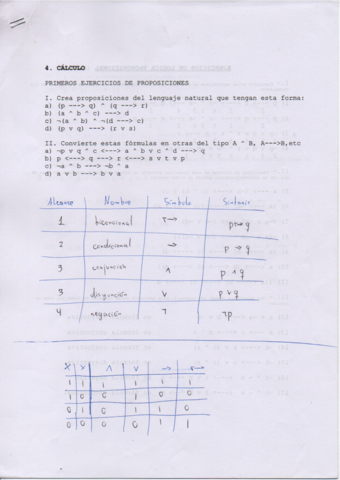 4. CÁLCULO
PRIMEROS EJERCICIOS DE PROPOSICIONES
I. Crea proposiciones del lenguaje natural que tengan esta forma:
a) (p ---> q) ^ (q ---> r)
b) (a ^ b ^ c) ---> d
c) ¬(a ^ b) ^ ¬(d ---> c)
d) (p v q) ---> (r v s)
II. Convierte estas fórmulas en otras del tipo A ^ B, A--->B,etc
a) ¬p v q ^ c <---> a ^ b v c ^ d ---> q
b) p <---> q ---> r <---> s v t v p
c) ¬a ^ b ---> ¬b ^ a
d) a v b ---> b v a
Alcance Nombre Símbolo Sintaxis
1 bicondicional ←→ p↔q
2 condicional → p → q
3 conjunción ∧ p ∧ q
3 disyunción v p v q
4 negación ¬ ¬p
X Y ∧ v → ←→
1 1 1 1 1 1
1 0 0 1 0 0
0 1 0 1 1 0
0 0 0 0 1 1